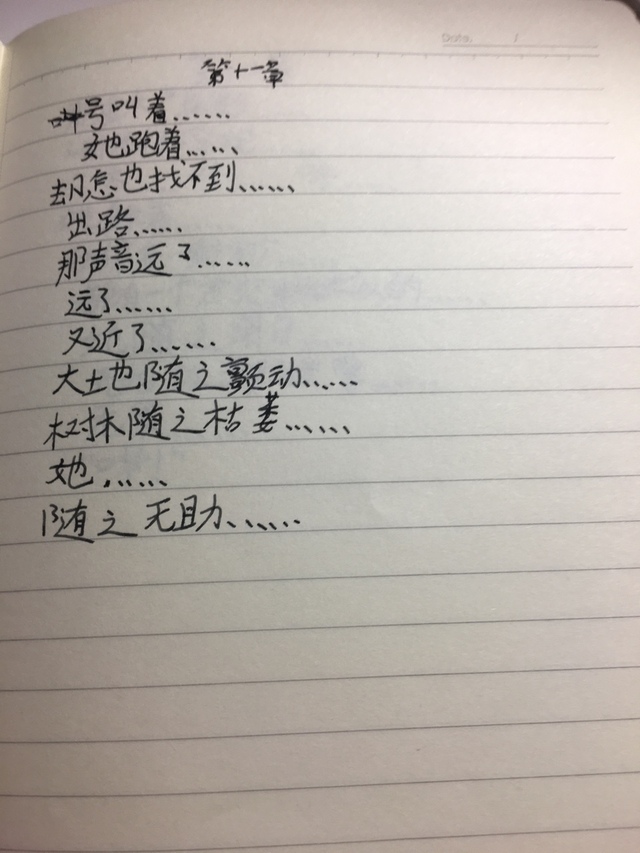 Date. /
第十一章
号叫着……
她跑着……
却怎也找不到……
出路……
那声音远了……
远了……
又近了……
大土也随之颤动……
树木随之枯萎……
她，……
随之无助……